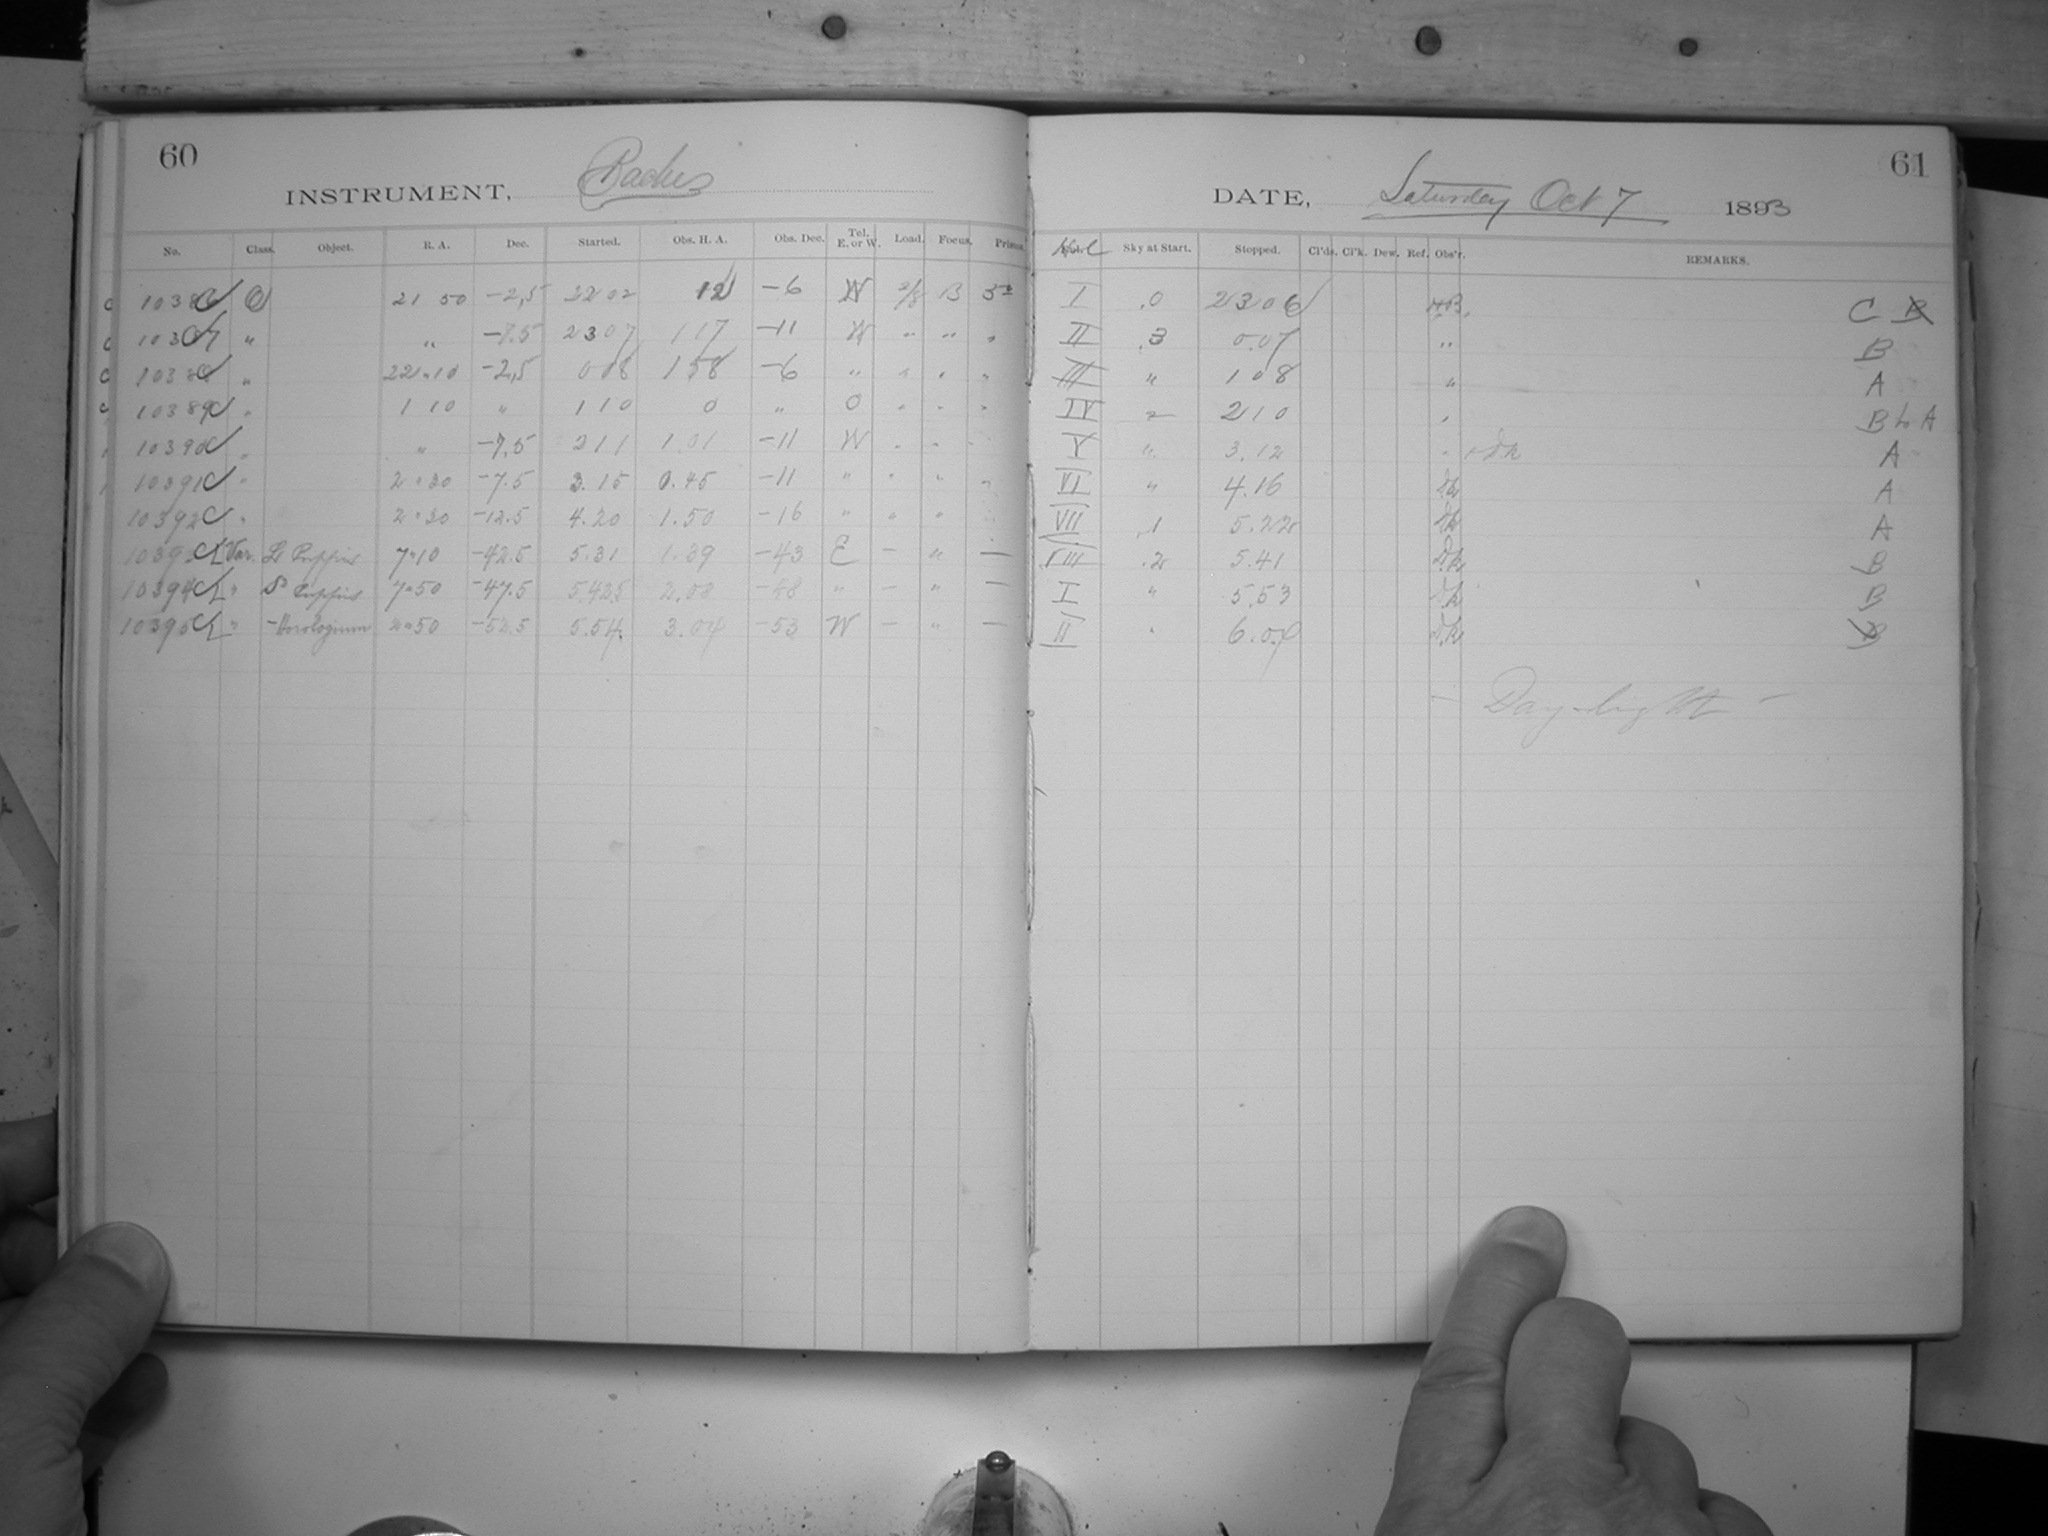 60
INSTRUMENT, Bache
No. Class. Object. R. A. Dec. Started. Obs. H. A. Obs. Dec. Tel. E. or W. Load. Focus. Prisms.
10386 O 21 50 -2,5 22 02 12 -6 W 2/8 B 5
10387 " " -7.5 23 07 1 17 -11 W " " "
10388 " 22 10 -2,5 0 08 1 58 -6 " " " "
10389 " 1 10 " 1 10 0 " O " " "
10390 " " -7,5 2 11 1 01 -11 W " " "
10391 " 2 30 -7.5 3.15 0.45 -11 " " " "
10392 " 2 30 -12.5 4.20 1.50 -16 " " "
10393 Var. L2 Puppis 7 10 -42.5 5.31 1.39 -43 E - " -
10394 " S Puppis 7 50 -47.5 5.42.5 2.08 -48 " - " -
10395 " - Horologium 2 50 -52.5 5.54 3.04 -53 W - " -
61
DATE, Saturday Oct 7 1893
Sky at Start. Stopped. Cl'ds. Cl'k. Dew. Ref. Obs'r. REMARKS.
I .0 23 06 C B
II .3 0.07 " B
III " 1 08 " A
IV 2 10 B to A
V " 3.12 A
VI " 4.16 A
VII .1 5.22 A
VIII .2 5.41 B
I " 5.53 B
II " 6.04 B
- Day-light -